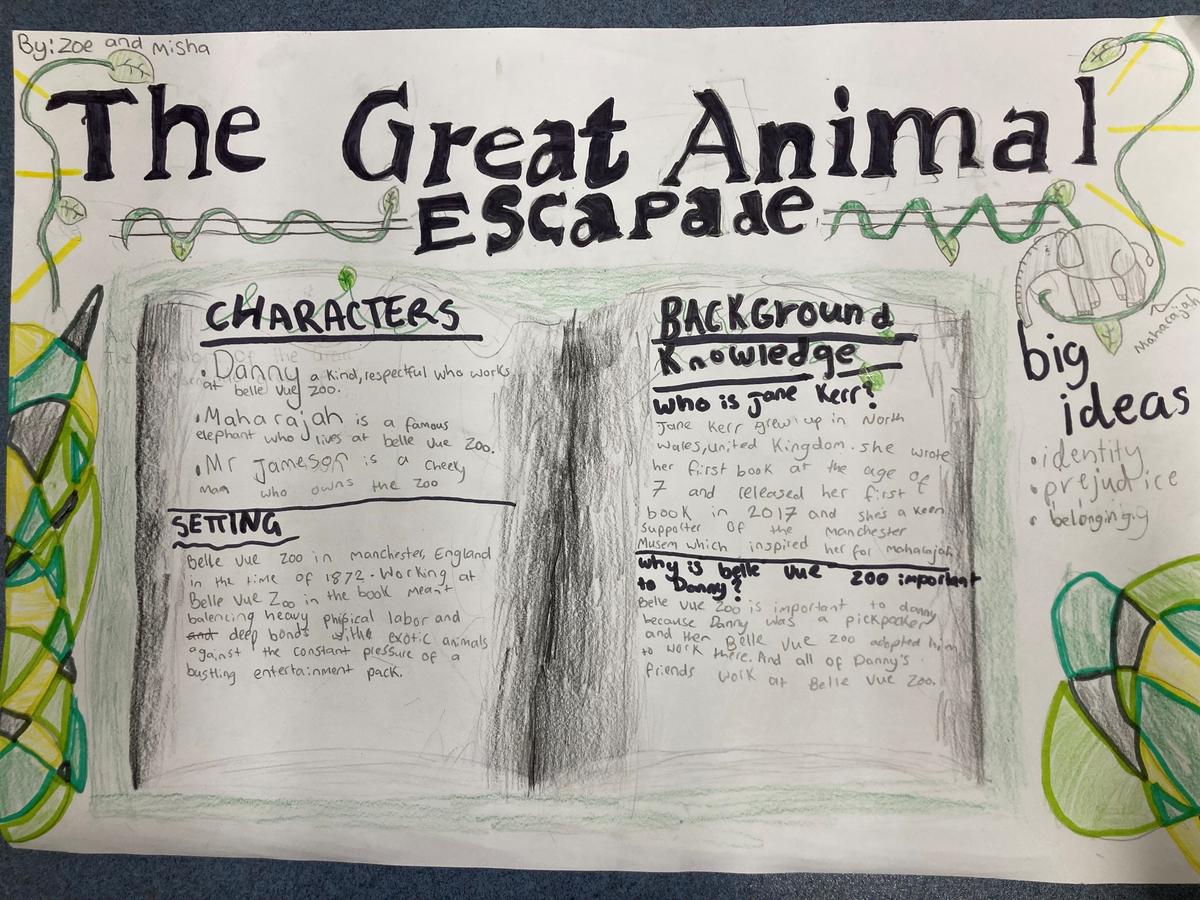 By: Zoe and Misha
The Great Animal
Escapade
CHARACTERS
• Danny a kind, respectful who works
at belle vue zoo.
• Maharajah is a famous
elephant who lives at belle vue zoo.
• Mr Jameson is a cheeky
man who owns the zoo
SETTING
Belle Vue zoo in manchester, England
in the time of 1872. Working at
Belle Vue Zoo in the book meant
balencing heavy phisical labor and
and deep bonds with exotic animals
against the constant pressure of a
bustling entertainment pack.
BACKGround
Knowledge
Who is jane Kerr?
Jane Kerr grew up in North
Wales, united Kingdom. she wrote
her first book at the age of
7 and released her first
book in 2017 and she's a keen
supporter of the manchester
Musem which inspired her for maharajah
Why is belle vue zoo important
to Danny?
Belle Vue Zoo is important to danny
because Danny was a pickpocker
and then Belle Vue Zoo adopted him
to work there. And all of Danny's
friends work at Belle Vue Zoo.
Maharajah
big
ideas
• identity
• prejudice
• belonging